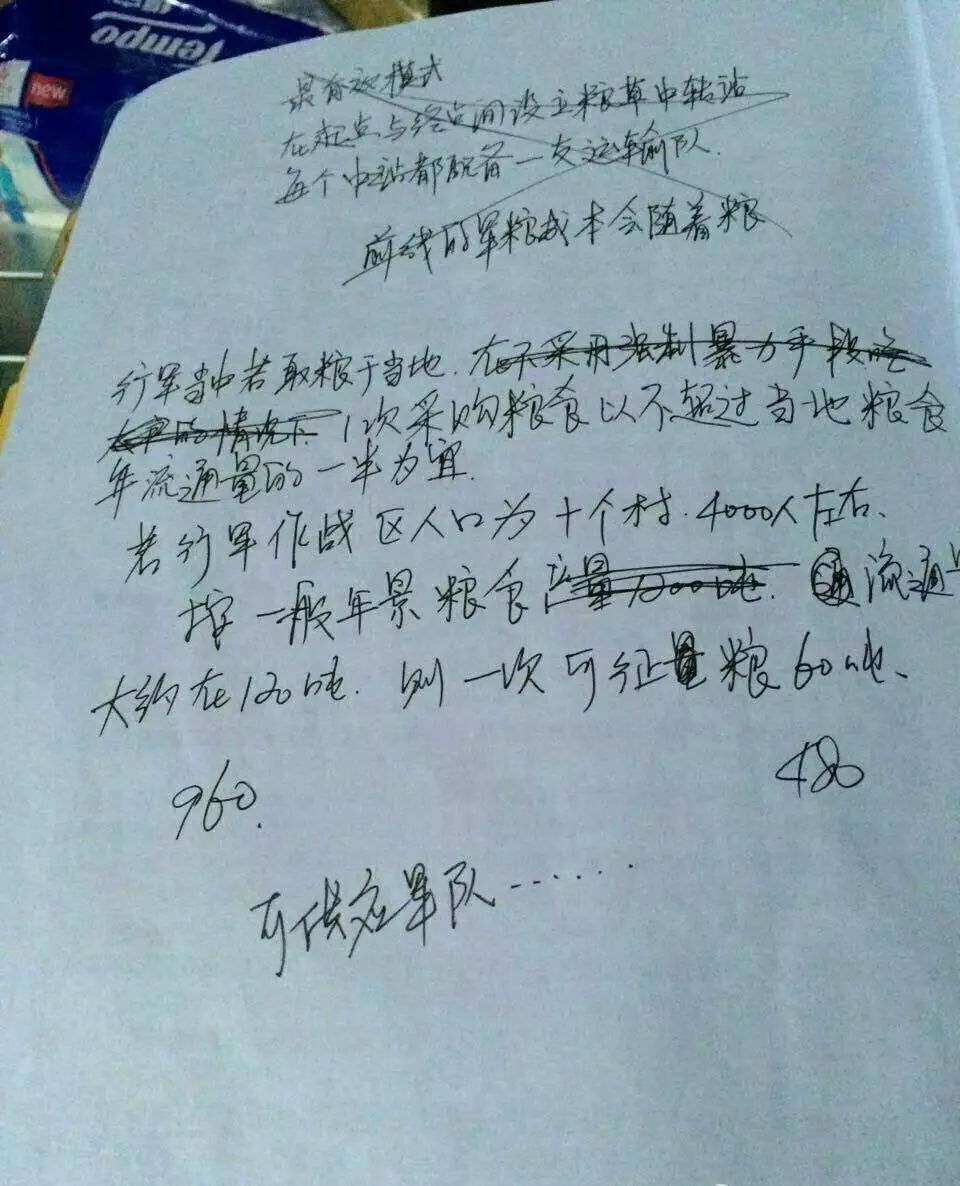 Tempo
new
最有效模式
在起点与终点间设立粮草中转站
每个中站都配备一支运输队.
前线的军粮成本会随着粮
行军当中若取粮于当地.在不采用强制暴力手段
的情况下 1次采购粮食以不超过当地粮食
年流通量的一半为宜.
若行军作战区人口为十个村.4000人左右、
按一般年景粮食产量1200吨. 流通
大约在120吨. 则一次可征粮60吨、
960. 480
可供应军队……